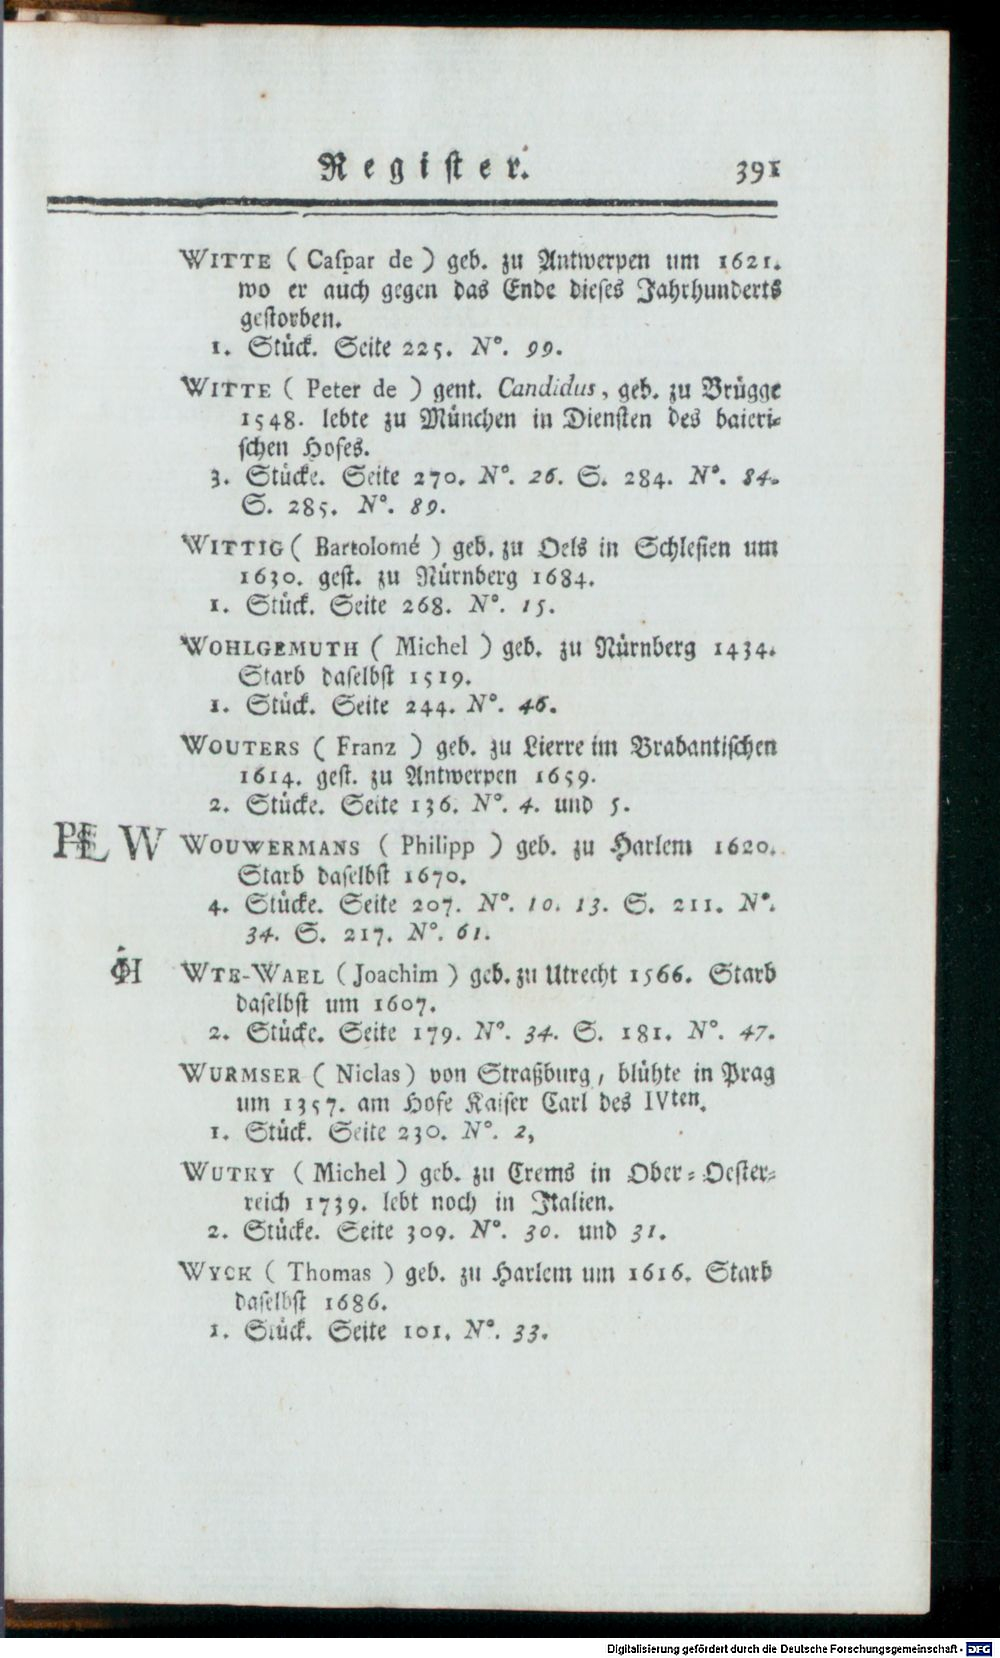 Register. 391
WITTE ( Caspar de ) geb. zu Antwerpen um 1621.
wo er auch gegen das Ende dieses Jahrhunderts
gestorben.
1. Stück. Seite 225. N°. 99.
WITTE ( Peter de ) gent. Candidus, geb. zu Brügge
1548. lebte zu München in Diensten des baieri-
schen Hofes.
3. Stücke. Seite 270. N°. 26. S. 284. N°. 84.
S. 285. N°. 89.
WITTIG ( Bartolomé ) geb. zu Oels in Schlesien um
1630. gest. zu Nürnberg 1684.
1. Stück. Seite 268. N°. 15.
WOHLGEMUTH ( Michel ) geb. zu Nürnberg 1434.
Starb daselbst 1519.
1. Stück. Seite 244. N°. 46.
WOUTERS ( Franz ) geb. zu Lierre im Brabantischen
1614. gest. zu Antwerpen 1659.
2. Stücke. Seite 136. N°. 4. und 5.
W WOUWERMANS ( Philipp ) geb. zu Harlem 1620.
Starb daselbst 1670.
4. Stücke. Seite 207. N°. 10. 13. S. 211. N°.
34. S. 217. N°. 61.
WTE-WAEL ( Joachim ) geb. zu Utrecht 1566. Starb
daselbst um 1607.
2. Stücke. Seite 179. N°. 34. S. 181. N°. 47.
WURMSER ( Niclas ) von Straßburg, blühte in Prag
um 1357. am Hofe Kaiser Carl des IVten.
1. Stück. Seite 230. N°. 2,
WUTKY ( Michel ) geb. zu Crems in Ober-Oester-
reich 1739. lebt noch in Italien.
2. Stücke. Seite 309. N°. 30. und 31.
WYCK ( Thomas ) geb. zu Harlem um 1616. Starb
daselbst 1686.
1. Stück. Seite 101. N°. 33.
Digitalisierung gefördert durch die Deutsche Forschungsgemeinschaft - DFG